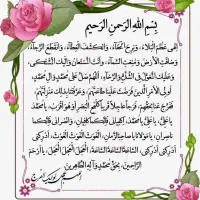 بِسْمِ اللهِ الرَّحْمنِ الرَّحیمِ
اِلهی عَظُمَ الْبَلاءُ، وَبَرِحَ الْخَفآءُ، وَانْکَشَفَ الْغِطآءُ، وَانْقَطَعَ الرَّجآءُ،
وَضاقَتِ الْاَرْضُ، وَمُنِعَتِ السَّمآءُ، وَاَنْتَ الْمُسْتَعانُ، وَاِلَیْکَ الْمُشْتَکی،
وَعَلَیْکَ الْمُعَوَّلُ فِی الشِّدَّةِ وَالرَّخآءِ، اَللّهُمَّ صَلِّ عَلی مُحَمَّدٍ وَآلِ مُحَمَّدٍ،
اُولِی الْاَمْرِ الَّذینَ فَرَضْتَ عَلَیْنا طاعَتَهُمْ، وَعَرَّفْتَنا بِذلِکَ مَنْزِلَتَهُمْ،
فَفَرِّجْ عَنّا بِحَقِّهِمْ، فَرَجاً عاجِلاً قَریباً کَلَمْحِ الْبَصَرِ اَوْ هُوَ اَقْرَبُ، یا مُحَمَّدُ
یا عَلِیُّ، یا عَلِیُّ یا مُحَمَّدُ، اِکْفِیانی فَاِنَّکُما کافِیانِ، وَانْصُرانی فَاِنَّکُما
ناصِرانِ، یا مَوْلانا یا صاحِبَ الزَّمانِ، الْغَوْثَ الْغَوْثَ الْغَوْثَ، اَدْرِکْنی
اَدْرِکْنی اَدْرِکْنی، السّاعَةَ السّاعَةَ السّاعَةَ، الْعَجَلَ الْعَجَلَ الْعَجَلَ، یا اَرْحَمَ
الرّاحِمینَ، بِحَقِّ مُحَمَّدٍ وَآلِهِ الطّاهِرینَ.